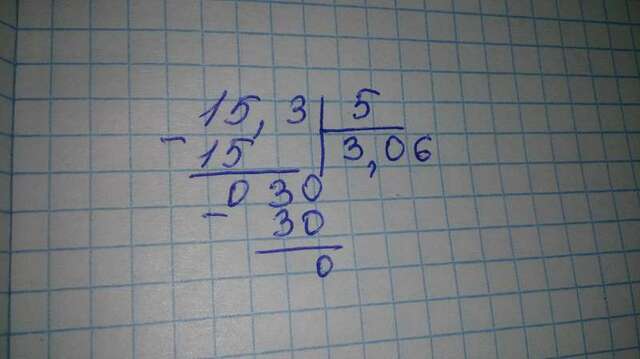 15,3 5
- 15 3,06
0 30
- 30
0